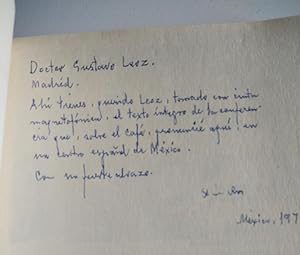 Doctor Gustavo Leoz.
Madrid.
Ahí tienes, querido Leoz, tomado con cinta
magnetofónica, el texto íntegro de la conferen
cia que, sobre el café, pronuncié aquí, en
un centro español de México.
Con un fuerte abrazo.
México, 197